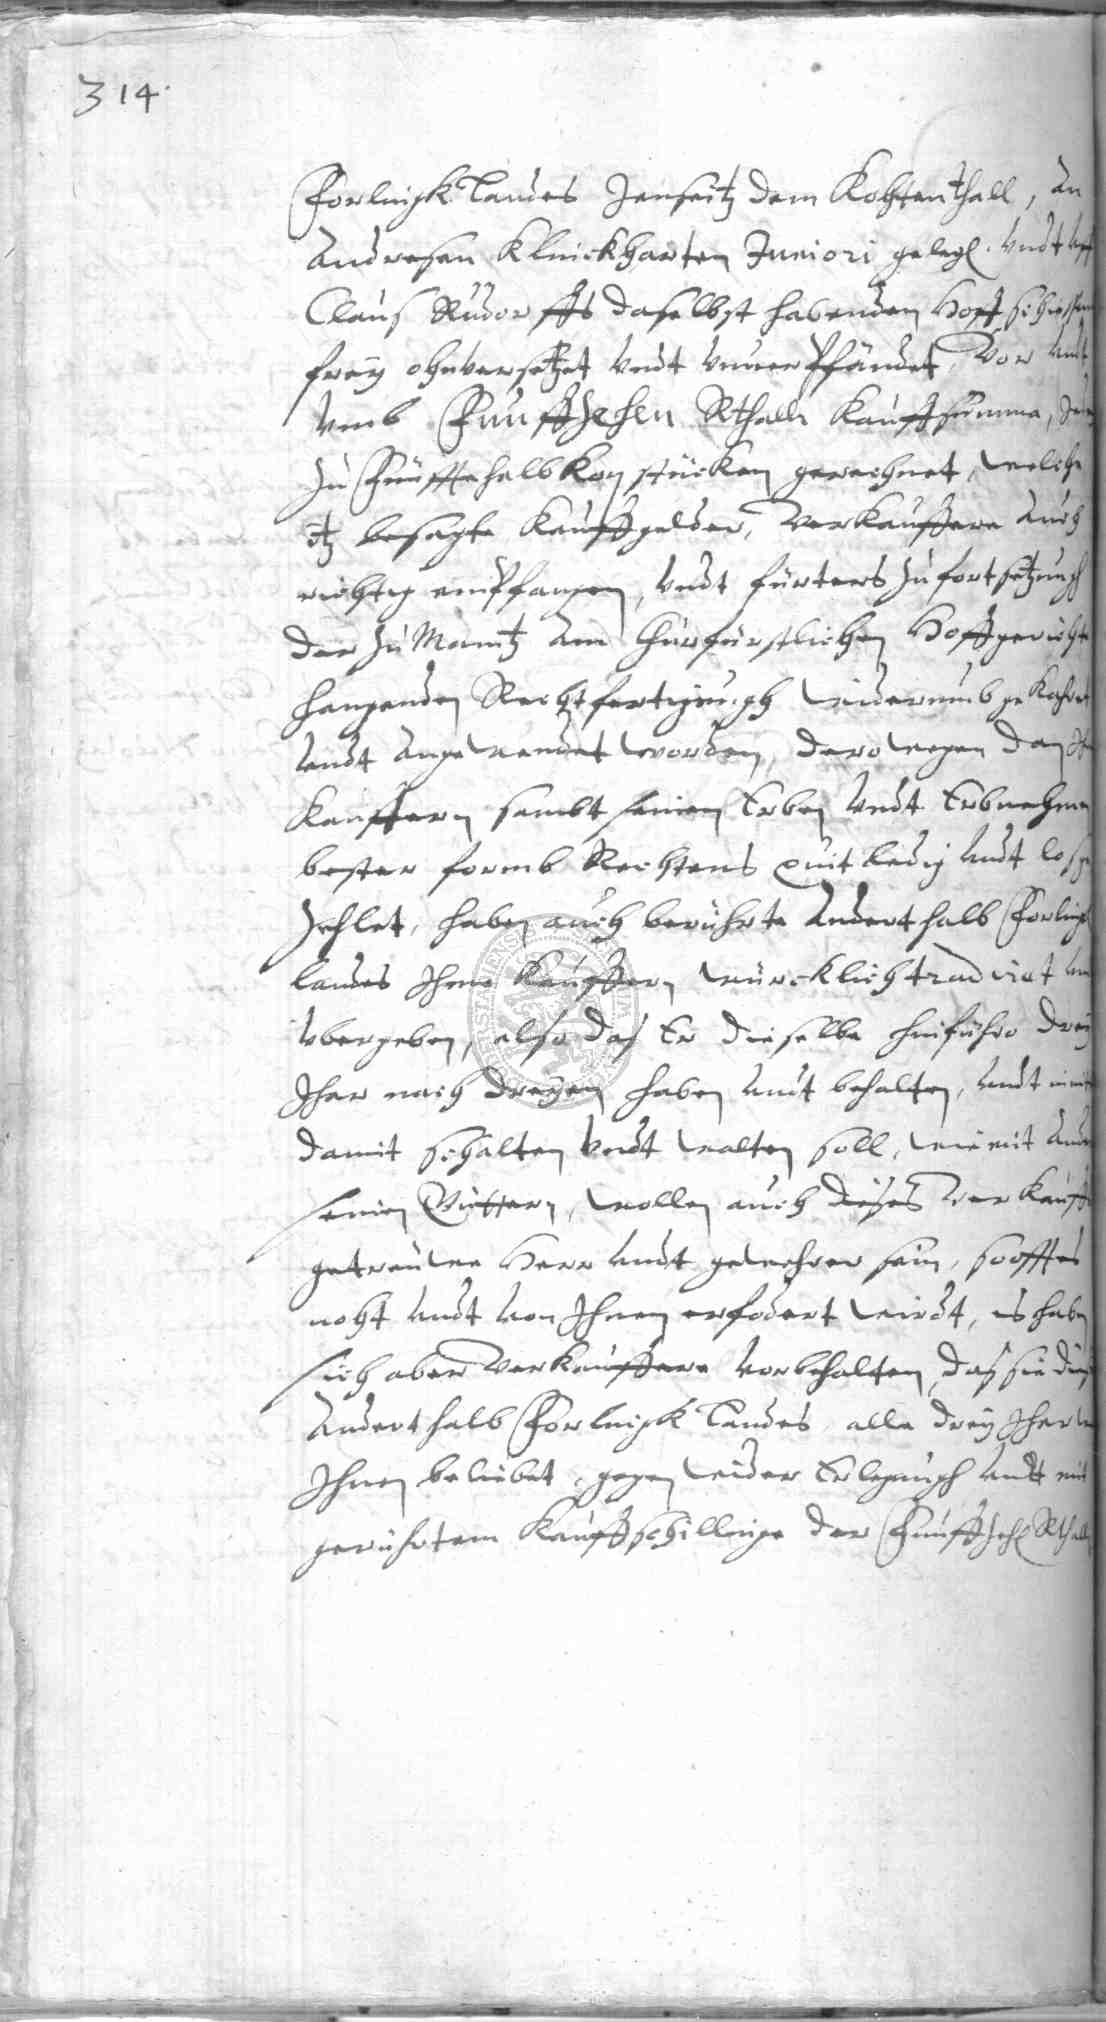 314.
Forlingk Landes Jenseitz dem Kohtenthall, an
Andresen Klinckharten Juniori geleg. Undt uff
Claus Rudorffs daselbst habenden Hoff schiessen
freÿ ohnversetzet Undt Unverpfändet, Vor Undt
Umb Funffzehen Rthaler Kauffsumma, Jeden
zu Fünfftehalb Kopstücken gerechnet, welche
itz besagte Kauffgelder, Verkauffere auch
richtig empfangen, Undt fürters zu fortsetzungh
der zu Maintz am Churfürstlichen Hoffgerichte
hangenden Rechtfertigungh widerumb gekehret
Undt angewendet worden, derowegen dan Ihn
Kauffern sambt seinen Erben Undt Erbnehmen
bester formb Rechtens quit ledig Undt loss
zehlet, haben auch berührte Anderthalb Forlingk
Landes Ihme Kauffern würcklich tradiret Und
Übergeben, also das Er dieselbe hinführo dreÿ
Jhar nach dreÿen haben Undt behalten, Undt
damit schalten Undt walten soll, wie mit Andern
seinen Güttern, wollen auch dieses Verkauffs
getreuwe Herr Undt gewehrer sein, so offt es
noht Undt von Ihnen erfodert wirdt, es haben
sich aber Verkauffere Vorbehalten, das sie diese
Anderthalb Forlingk Landes alle dreÿ Jhar
Ihnen beliebet, gegen wider Erlegungh Undt mit
gerührtem Kauffschillinge der Funffzehen Rthaler